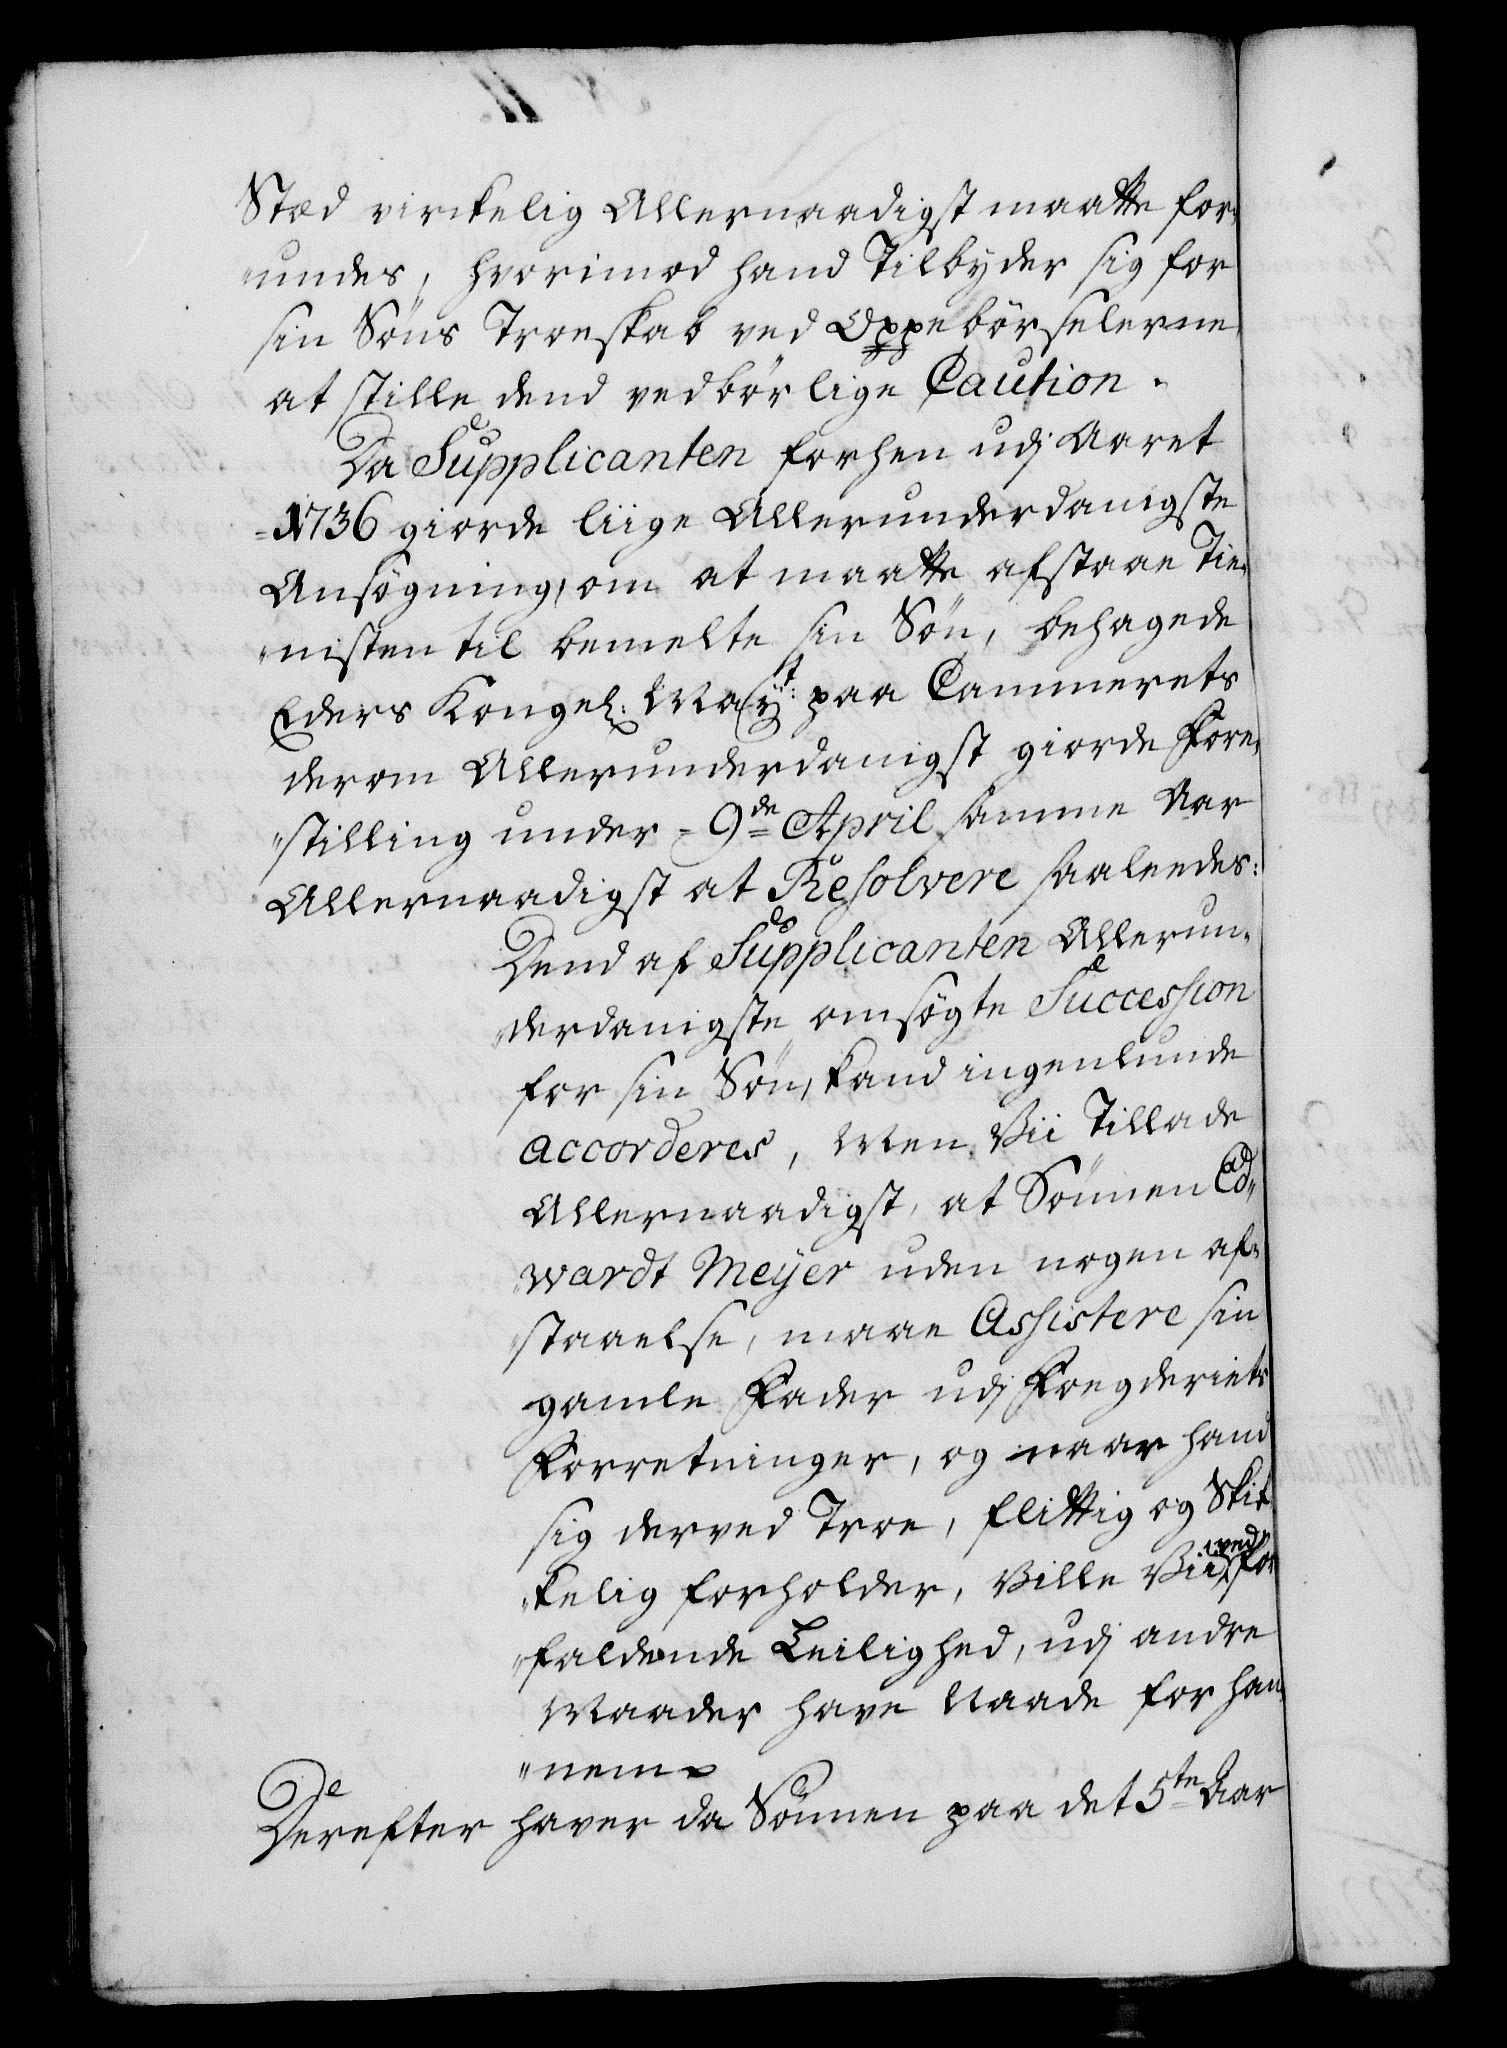 Stæd virkelig Allernaadigst maatte for-
"undes, hvorimod hand Tilbyder sig for
sin Søns Troeskab ved Oppebørselerne
at stille dend vedbørlige Caution.
Da Supplicanten forhen udj Aaret
=1736 giorde liige Allerunderdanigste
Ansøgning, om at maatte afstaae Tie-
"nisten til bemelte sin Søn, behagede
Eders Kongel: Mayt: paa Cammerets
derom Allerunderdanigst giorde Fore-
"stilling under = 9de April samme Aar
Allernaadigst at Resolvere saaleedes:
Dend af Supplicanten Allerun-
"derdanigste omsøgte Succession
for sin Søn, kand ingenlunde
accorderes, Men Vii Tillade
Allernaadigst, at Sønnen Ed-
"wardt Meyer uden nogen af-
"staaelse, maae Assistere sin
gamle Fader udj Foegderiets
Forretninger, og naar hand
sig derved Troe, flittig og Skik-
"kelig forholder, Ville Vii ved for
"faldende Leilighed, udj andre
Maader have Naade for han-
"nem.
Derefter haver da Sønnen paa det 5te Aar